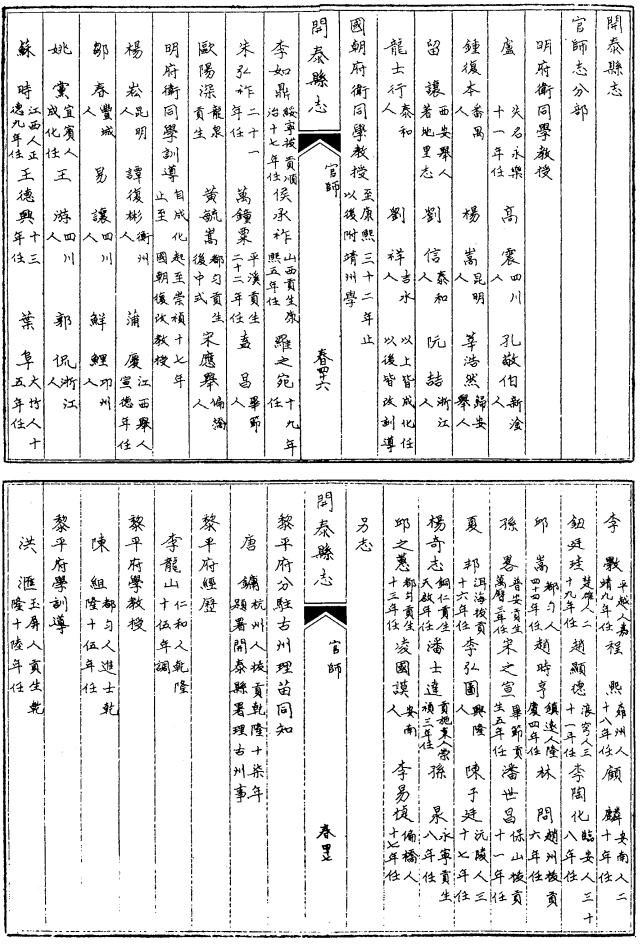 開泰縣志
官師志分部
明府衛同學教授
盛 失名永樂十一年任 高震 四川人 孔敬伯 新淦人
鍾復本 番禺人 楊嵩 昆明人 莘浩然 歸安舉人
留讓 西安舉人著地里志 劉信 泰和人 阮喆 浙江人
龍士行 泰和人 劉祥 吉水人 以上皆成化任以後皆改訓導
國朝府衛同學教授 至康熙三十二年止以後附靖州學
開泰縣志 官師 春四六
李如鼎 綏寧拔貢順治十七年任 侯承祚 山西貢生康熙五年任 羅之宛 十九年任
朱弘祚 二十一年任 萬鐘粟 平溪貢生二十二年任 孟昌 畢節人
歐陽深 龍泉貢生 黃毓嵩 都勻貢生後中式 宋應舉 偏橋人
明府衛同學訓導 自成化起至崇禎十七年止至國朝復改教授
楊崧 昆明人 譚復彬 衡州人 蒲慶 江西舉人宣德年任
鄒春 豐城人 易讓 四川人 鮮鯉 邛州人
姚黨 宜賓人成化任 王游 四川人 郭侃 浙江人
蘇時 江西人正德九年任 王德興 十三年任 葉阜 大竹人十五年任
李數 平越人嘉靖九年任 程熙 雍州人十八年任 顧麟 安南人二十年任
鈕廷珪 楚雄人二十九年任 趙顯德 浪穹人三十一年任 李陶化 臨安人三十八年任
邱嵩 都勻人四十四年任 趙時亨 鎮遠人隆慶四年任 林問 趙州拔貢六年任
孫畧 普安貢生萬曆三年任 宋之宣 畢節貢生五年任 潘世昌 保山拔貢十一年任
夏邦 洱海拔貢十六年任 李弘圖 興隆人 陳于廷 沅陵人三十七年任
楊奇志 銅仁貢生天啟年任 潘士達 貢施秉人崇禎三年任 孫泉 永寧貢生八年任
邱之蕙 都勻貢生十三年任 凌國謨 安南人 李易楨 偏橋人十七年任
另志
開泰縣志 官師
黎平府分駐古州理苗同知
唐鏞 杭州人拔貢乾隆十柒年題署開泰縣署理古州事
黎平府經歷
李龍山 仁和人乾隆十伍年調
黎平府學教授
陳組 都勻人進士乾隆十伍年任
黎平府學訓導
洪滙 玉屏人貢生乾隆十陸年任